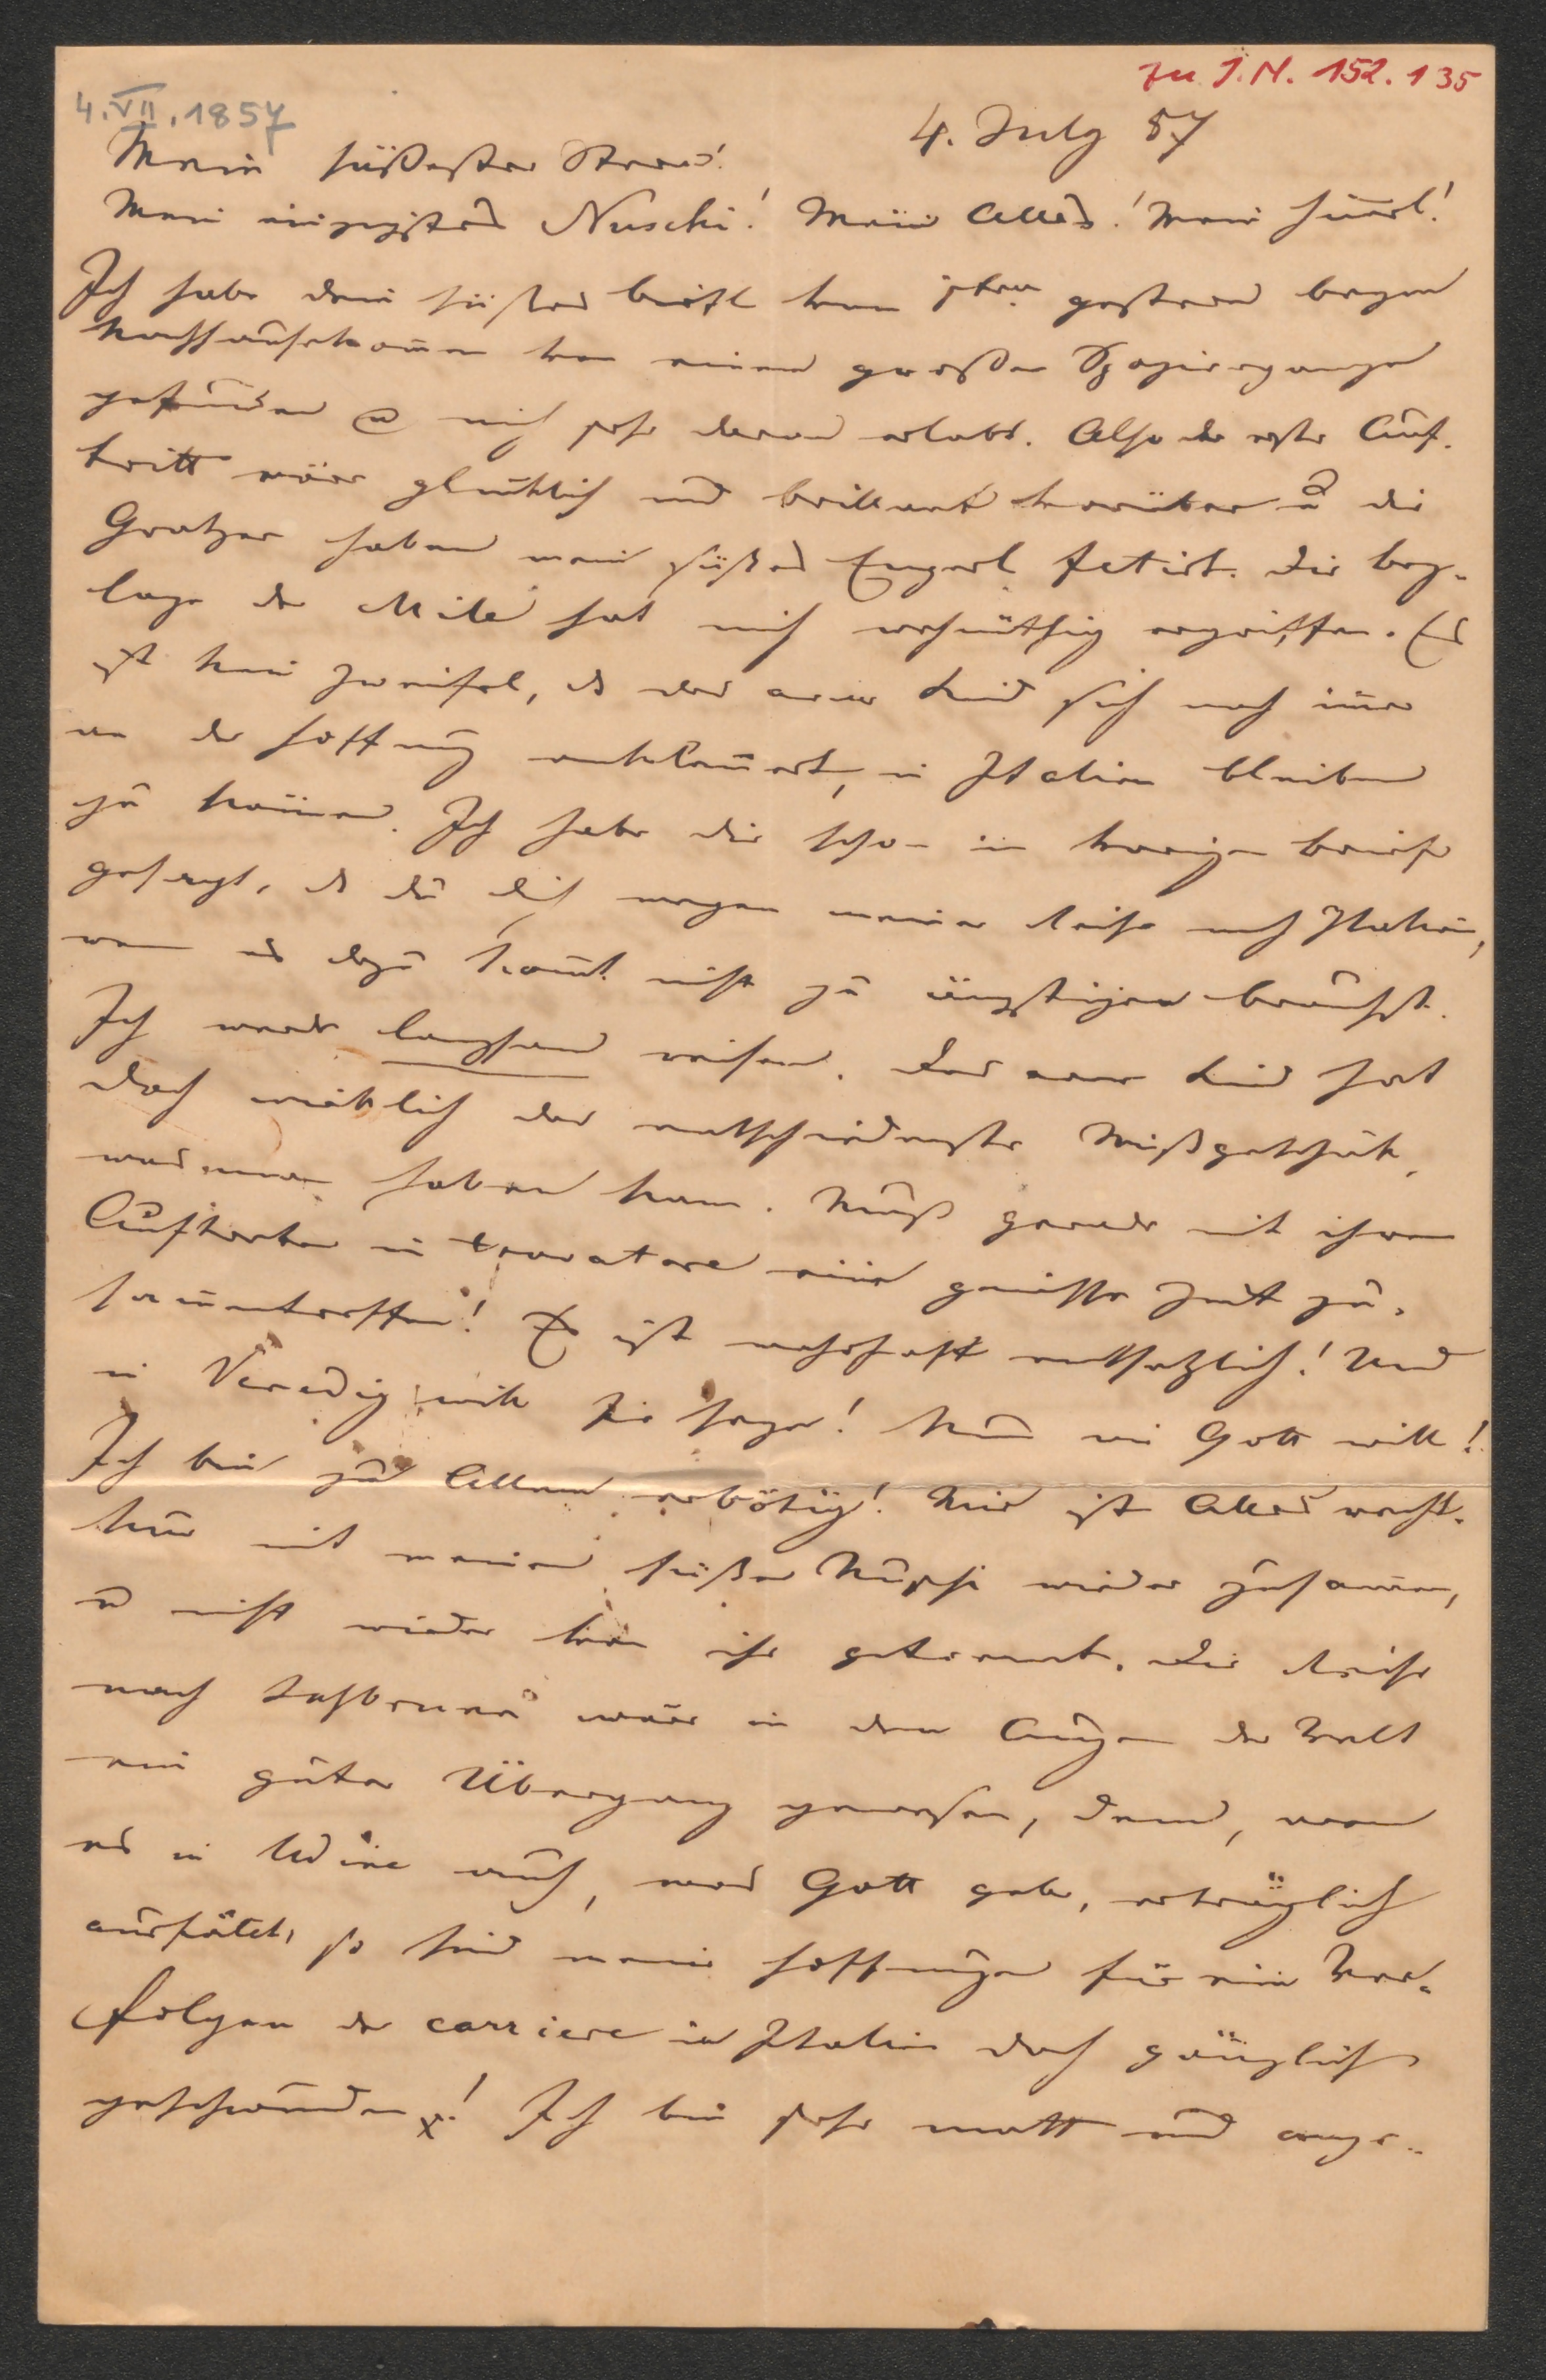 zu I.N. 152.135
4.VII.1857
4. July 57
Mein süßester Stern!
Mein einzigstes Nuschi! Mein Alles! Mein Hunerl!
Ich habe dein süßes briefl vom gestern beym
Nachhausekom̄en von einem großen Spaziergange
gefunden u mich sehr daran erlabt. Also der erste Auf-
tritt wäre glücklich und brillant vorüber u die
Gratzer haben mein süßes Engerl fetirt. Die bey-
lage der Mila hat mich wehmüthig ergriffen. Es
ist kein Zweifel, daß das arme Kind sich noch im̄er
an die Hoffnung anklam̄ert, in Italien bleiben
zu kön̄en. Ich habe dir schon im vorigen briefe
gesagt, daß du dich wegen meiner Reise nach Italien,
wen̄ es dazu kom̄t nicht zu ängstigen brauchst.
Ich werde langsam reisen. Das arme Kind hat
doch wirklich das entschiedenste Mißgeschick,
was man haben kann. Muß gerade mit ihrem
Auftreten in trovatore eine gewisse Zeit zu-
sam̄entreffen! Es ist wahrhaft entsetzlich! Und
in Venedig will sie sogar! Nun wie Gott will!
Ich bin zu Allem erbötig! Mir ist Alles recht.
Nur mit meinem süßen Nuschi wieder zusam̄en,
u nicht wieder von ihr getrennt. Die Reise
nach wäre in den Augen der Welt
ein guter Übergang gewesen, denn, wenn
es in Udine auch, was Gott gebe, erträglich
ausfällt, so sind meine Hoffnungen für ein Ver-
folgen der carriere in Italien doch gänzlich
geschwunden! Ich bin sehr matt und ange-